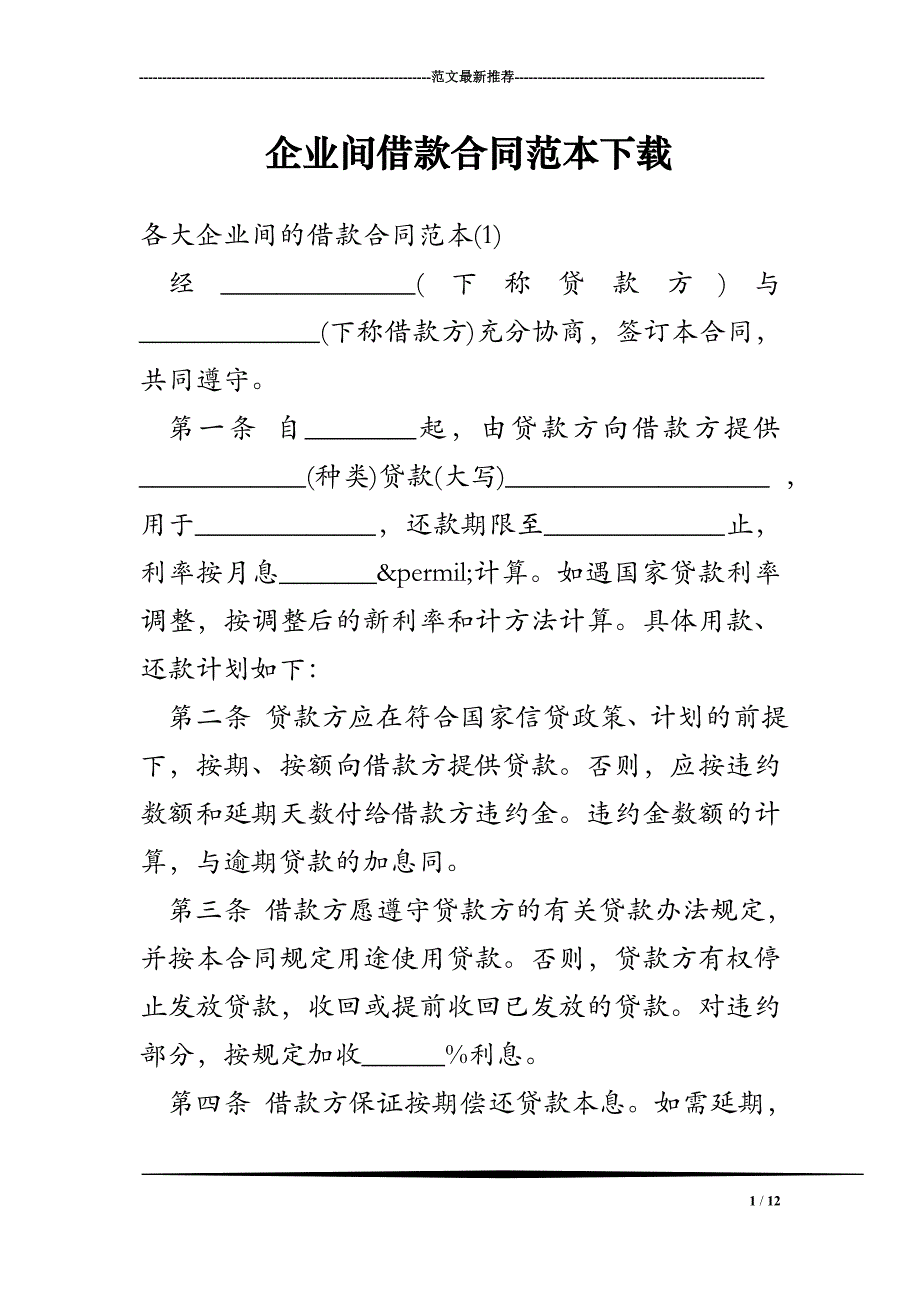 ---------------------------------------------------------------范文最新推荐------------------------------------------------------
企业间借款合同范本下载
各大企业间的借款合同范本(1)
经______________(下称贷款方)与
_____________(下称借款方)充分协商，签订本合同，
共同遵守。
第一条 自________起，由贷款方向借款方提供
____________(种类)贷款(大写)___________________，
用于_____________，还款期限至_____________止，
利率按月息_______&permil;计算。如遇国家贷款利率
调整，按调整后的新利率和计方法计算。具体用款、
还款计划如下：
第二条 贷款方应在符合国家信贷政策、计划的前提
下，按期、按额向借款方提供贷款。否则，应按违约
数额和延期天数付给借款方违约金。违约金数额的计
算，与逾期贷款的加息同。
第三条 借款方愿遵守贷款方的有关贷款办法规定，
并按本合同规定用途使用贷款。否则，贷款方有权停
止发放贷款，收回或提前收回已发放的贷款。对违约
部分，按规定加收______%利息。
第四条 借款方保证按期偿还贷款本息。如需延期，
1 / 12